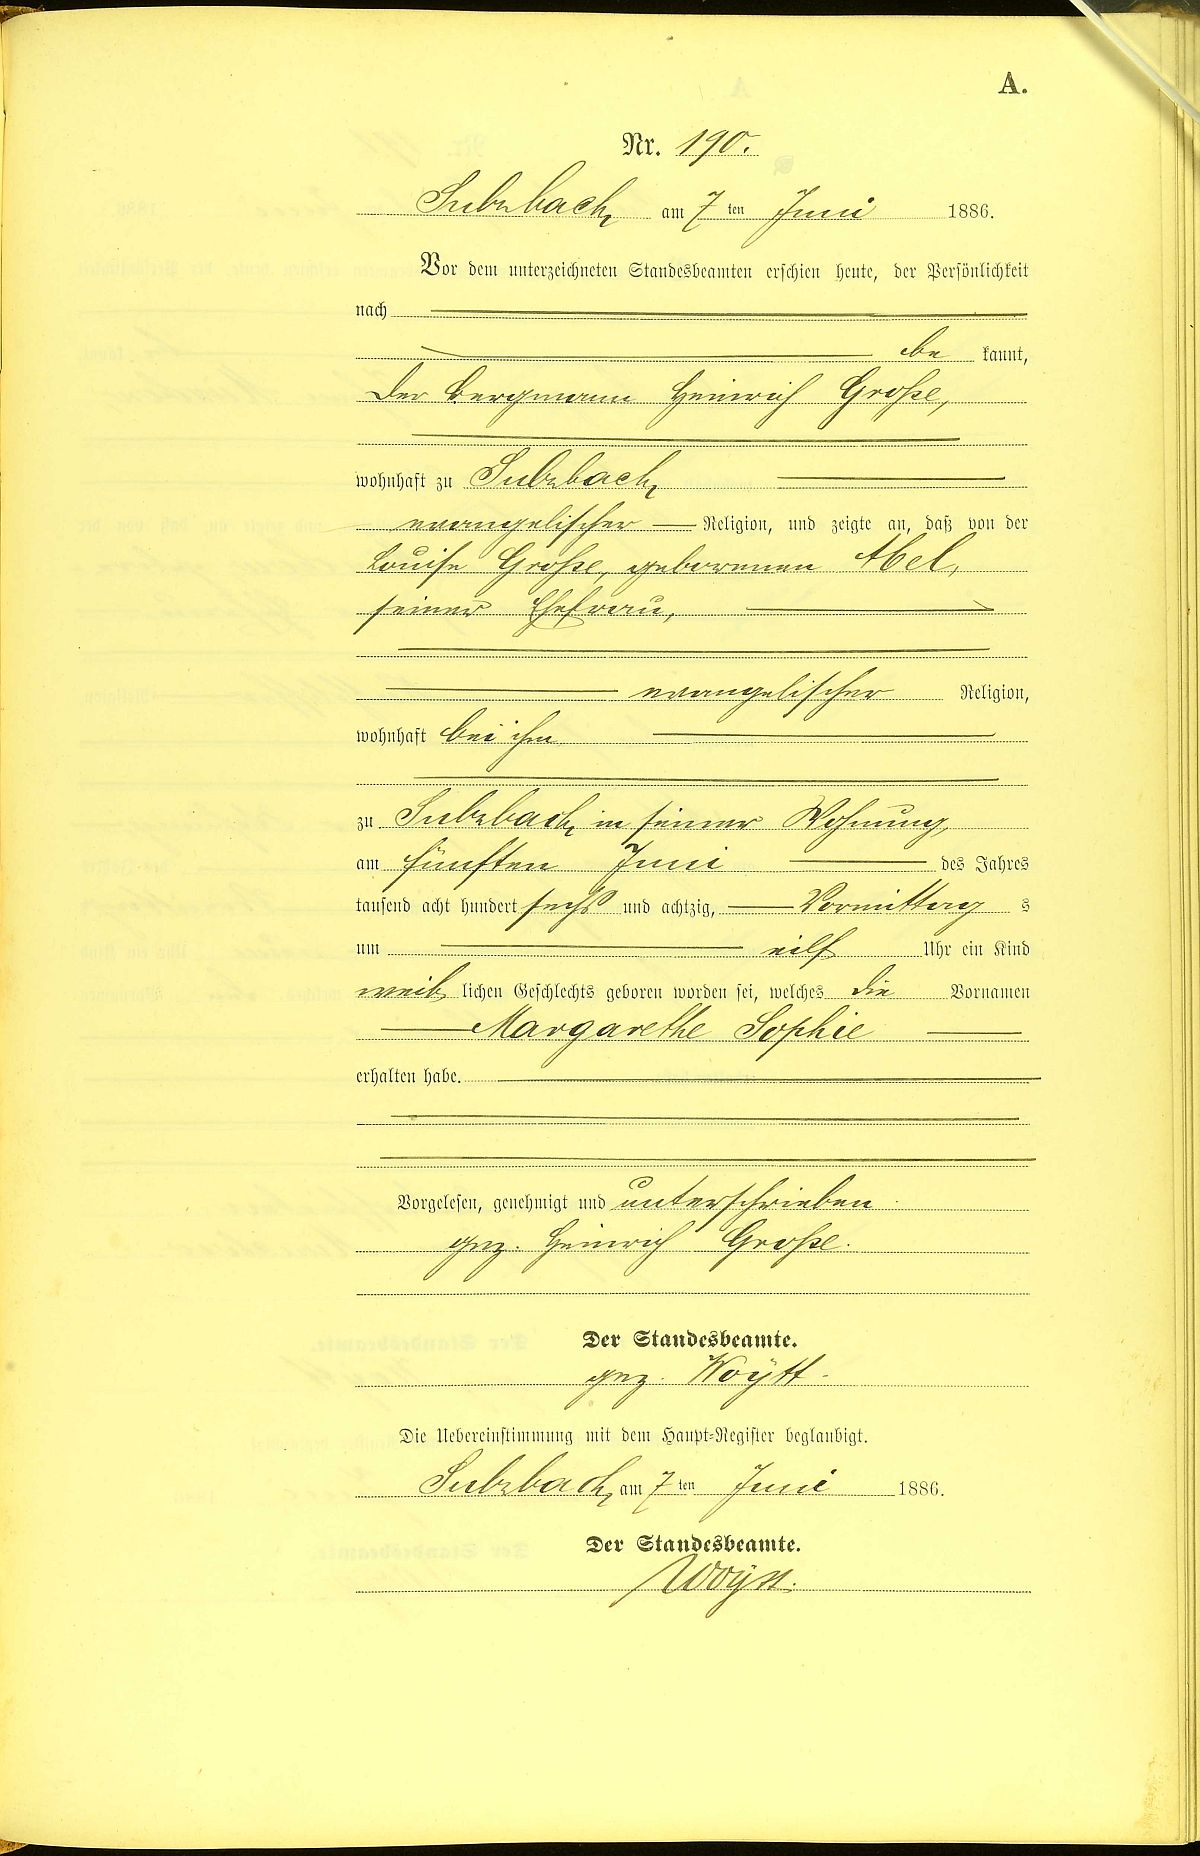 A.
Nr. 190.
Sulzbach, am 7ten Juni 1886.
Vor dem unterzeichneten Standesbeamten erschien heute, der Persönlichkeit
nach
be kannt,
der Bergmann Heinrich Große,
wohnhaft zu Sulzbach,
evangelischer Religion, und zeigte an, daß von der
Louise Große, geborenen Abel,
seiner Ehefrau,
evangelischer Religion,
wohnhaft bei ihm
zu Sulzbach, in seiner Wohnung,
am fünften Juni des Jahres
tausend acht hundert sechs und achtzig, Vormittag s
um eilf Uhr ein Kind
weib lichen Geschlechts geboren worden sei, welches die Vornamen
Margarethe Sophie
erhalten habe.
Vorgelesen, genehmigt und unterschrieben
gez. Heinrich Große.
Der Standesbeamte.
gez. Woytt.
Die Uebereinstimmung mit dem Haupt-Register beglaubigt.
Sulzbach, am 7ten Juni 1886.
Der Standesbeamte.
Woytt.